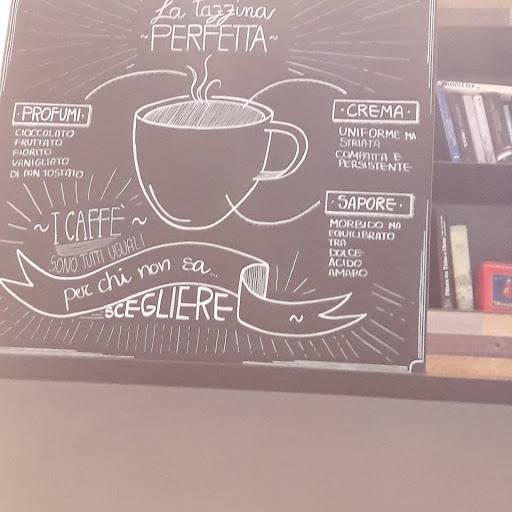 La Tazzina
~PERFETTA~
PROFUMI
CIOCCOLATO
FRUTTATO
FIORITO
VANIGLIATO
DI PAN TOSTATO
·CREMA·
UNIFORME MA
STRIATA
COMPATTA E
PERSISTENTE
·SAPORE·
MORBIDO MA
EQUILIBRATO
TRA
DOLCE
ACIDO
AMARO
~I CAFFE'~
SONO TUTTI UGUALI
per chi non sa...
SCEGLIERE
~